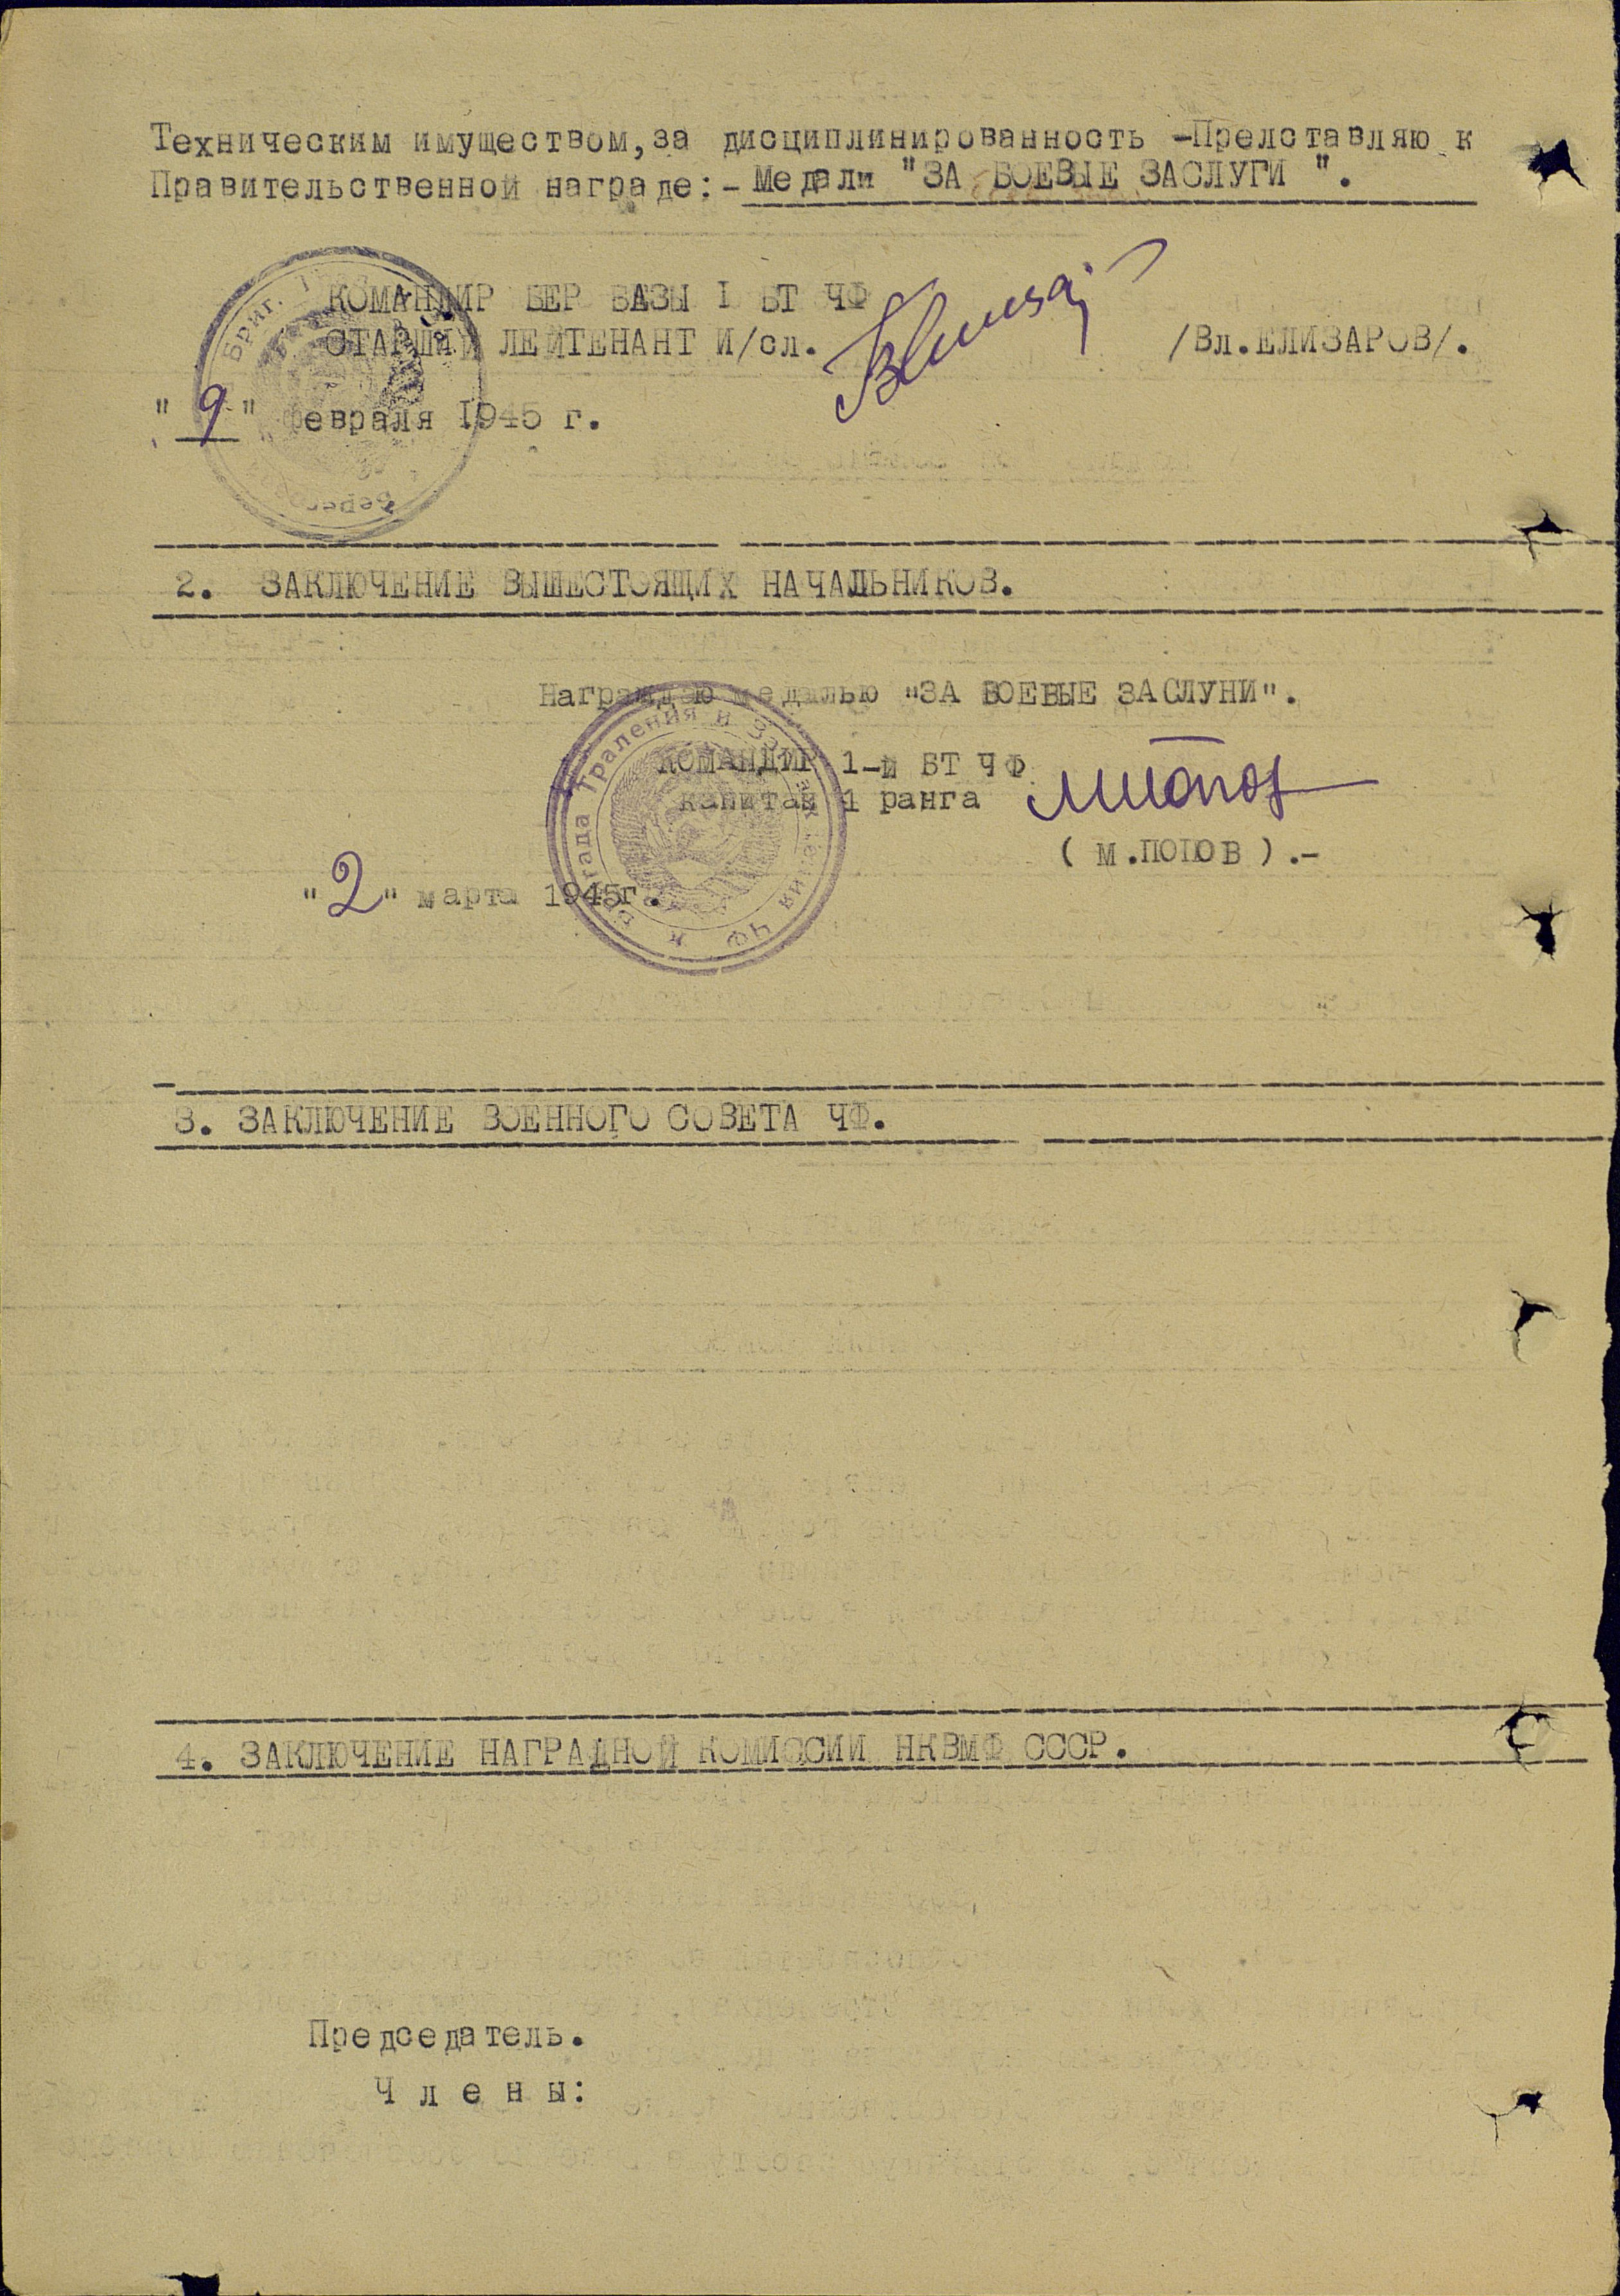 Техническим имуществом, за дисциплинированность -Прелставляю к
Правительственной награде:- Медали "ЗА БОЕВЫЕ ЗАСЛУГИ ".
КОМАНДИР БЕР БАЗЫ I БТ ЧФ
СТАРШИЙ ЛЕЙТЕНАНТ И/сл. /Вл.ЕЛИЗАРОВ/.
"9" февраля 1945 г.
2. ЗАКЛЮЧЕНИЕ ВЫШЕСТОЯЩИХ НАЧАЛЬНИКОВ.
Награждаю медалью "ЗА БОЕВЫЕ ЗАСЛУНИ".
КОМАНДИР 1-й БТ ЧФ
капитан 1 ранга
( М.ПОПОВ ).-
"2" марта 1945г.
Бригада Траления и ЧФ
3. ЗАКЛЮЧЕНИЕ ВОЕННОГО СОВЕТА ЧФ.
4. ЗАКЛЮЧЕНИЕ НАГРАДНОЙ КОМИССИИ НКВМФ СССР.
Председатель.
Члены: